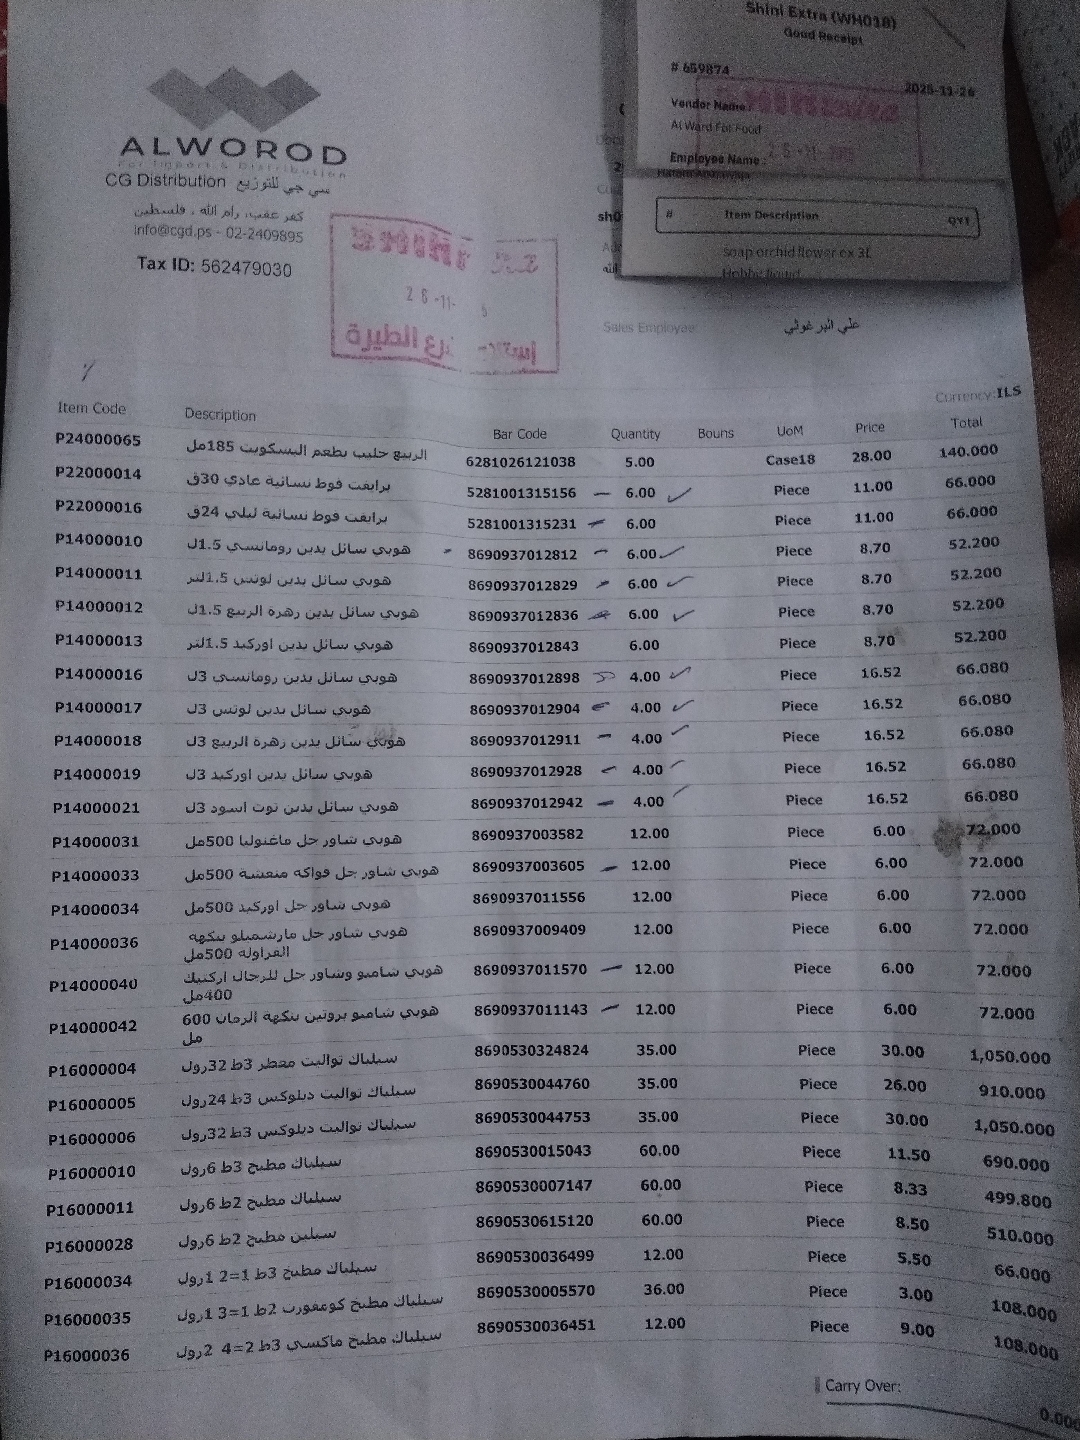 Shini Extra (WH018)
Good Receipt
# 659874
2025-11-26
Vendor Name :
Al Ward For Food
Employee Name :
26-11-
#
Item Description
QYT
soap orchid flower ex 3L
Hobby liquid
ALWOROD
For Import & Distribution
CG Distribution سي جي للتوزيع
كفر عقب، رام الله ، فلسطين
info@cgd.ps - 02-2409895
Tax ID: 562479030
26-11-
فرع الطيرة
Sales Employee:
علي البرغوثي
Currency:ILS
Item Code Description Bar Code Quantity Bouns UoM Price Total
P24000065 الربيع حليب بطعم البسكويت 185مل 6281026121038 5.00 Case18 28.00 140.000
P22000014 برايفت فوط نسائية عادي 30ق 5281001315156 6.00 Piece 11.00 66.000
P22000016 برايفت فوط نسائية ليلي 24ق 5281001315231 6.00 Piece 11.00 66.000
P14000010 هوبي سائل يدين رومانسي 1.5ل 8690937012812 6.00 Piece 8.70 52.200
P14000011 هوبي سائل يدين لوتس 1.5لتر 8690937012829 6.00 Piece 8.70 52.200
P14000012 هوبي سائل يدين زهرة الربيع 1.5ل 8690937012836 6.00 Piece 8.70 52.200
P14000013 هوبي سائل يدين اوركيد 1.5لتر 8690937012843 6.00 Piece 8.70 52.200
P14000016 هوبي سائل يدين رومانسي 3ل 8690937012898 4.00 Piece 16.52 66.080
P14000017 هوبي سائل يدين لوتس 3ل 8690937012904 4.00 Piece 16.52 66.080
P14000018 هوبي سائل يدين زهرة الربيع 3ل 8690937012911 4.00 Piece 16.52 66.080
P14000019 هوبي سائل يدين اوركيد 3ل 8690937012928 4.00 Piece 16.52 66.080
P14000021 هوبي سائل يدين توت اسود 3ل 8690937012942 4.00 Piece 16.52 66.080
P14000031 هوبي شاور جل ماغنوليا 500مل 8690937003582 12.00 Piece 6.00 72.000
P14000033 هوبي شاور جل فواكه منعشة 500مل 8690937003605 12.00 Piece 6.00 72.000
P14000034 هوبي شاور جل اوركيد 500مل 8690937011556 12.00 Piece 6.00 72.000
P14000036 هوبي شاور جل مارشميلو بنكهه 8690937009409 12.00 Piece 6.00 72.000
الفراوله 500مل
P14000040 هوبي شامبو وشاور جل للرجال اركتيك 8690937011570 12.00 Piece 6.00 72.000
400مل
P14000042 هوبي شامبو بروتين بنكهة الرمان 600 8690937011143 12.00 Piece 6.00 72.000
مل
P16000004 سيلباك تواليت معطر 3ط 32رول 8690530324824 35.00 Piece 30.00 1,050.000
P16000005 سيلباك تواليت ديلوكس 3ط 24رول 8690530044760 35.00 Piece 26.00 910.000
P16000006 سيلباك تواليت ديلوكس 3ط 32رول 8690530044753 35.00 Piece 30.00 1,050.000
P16000010 سيلباك مطبخ 3ط 6رول 8690530015043 60.00 Piece 11.50 690.000
P16000011 سيلباك مطبخ 2ط 6رول 8690530007147 60.00 Piece 8.33 499.800
P16000028 سيلين مطبخ 2ط 6رول 8690530615120 60.00 Piece 8.50 510.000
P16000034 سيلباك مطبخ 3ط 1=2 1رول 8690530036499 12.00 Piece 5.50 66.000
P16000035 سيلباك مطبخ كومفورت 2ط 1=3 1رول 8690530005570 36.00 Piece 3.00 108.000
P16000036 سيلباك مطبخ ماكسي 3ط 2=4 2رول 8690530036451 12.00 Piece 9.00 108.000
Carry Over: